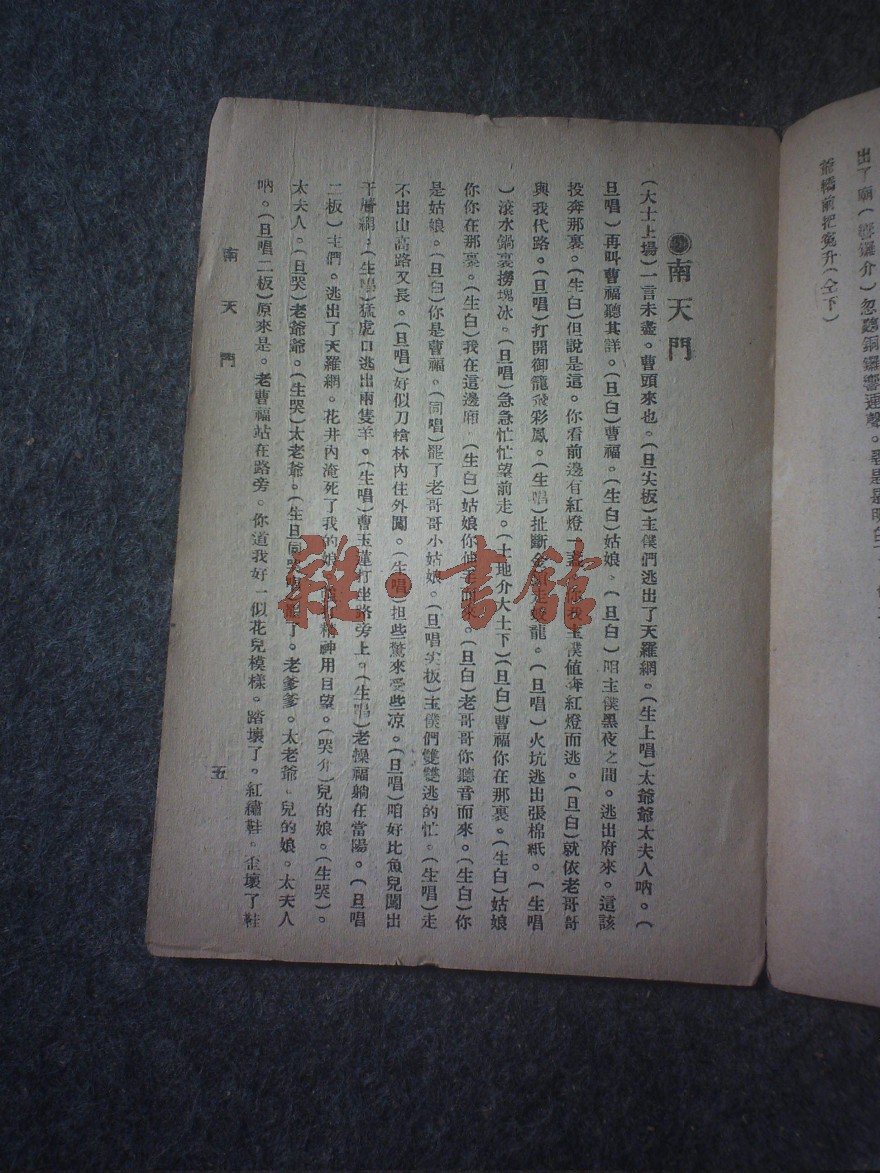 出了廟（響鑼介）忽聽銅鑼響連聲。
爺橋前把寃升（仝下）
南天門
（大士上場）一言未盡。曹頭來也。（旦尖板）主僕們逃出了天羅網。（生上唱）太爺爺太夫人吶。（
旦唱）再叫曹福聽其詳。（旦白）曹福。（生白）姑娘。（旦白）咱主僕黑夜之間。逃出府來。這該
投奔那裏。（生白）但說是這。你看前邊有紅燈一盞。你我主僕值奔紅燈而逃。（旦白）就依老哥哥
與我代路。（旦唱）打開御籠飛彩鳳。（生唱）扯斷金鎖走蛟龍。（旦唱）火坑逃出張棉紙。（生唱
）滾水鍋裏撈塊冰。（旦唱）急急忙忙望前走。（土地介大士下）（旦白）曹福你在那裏。（生白）姑娘
你你在那裏。（生白）我在這邊廂。（生白）姑娘你伸手而來。（旦白）老哥哥你聽音而來。（生白）你
是姑娘。（旦白）你是曹福。（同唱）罷了老哥哥小姑娘。（旦唱尖板）主僕們雙雙逃的忙。（生唱）走
不出山高路又長。（旦唱）好似刀槍林內住外闖。（生唱）担些驚來受些凉。（旦唱）咱好比魚兒闖出
千層網。（生唱）猛虎口逃出兩隻羊。（生唱）曹玉蓮打坐路旁上。（生唱）老曹福躺在當陽。（旦唱
二板）主們。逃出了天羅網。花井內淹死了我的娘。精神用目望。（哭介）兒的娘。（生哭）。
太夫人。（旦哭）老爺爺。（生哭）太老爺。（生旦同哭唱）罷了。老爹爹。太老爺。兒的娘。太夫人
吶。（旦唱二板）原來是。老曹福站在路旁。你道我好一似花兒模樣。踏壞了。紅繡鞋。歪壞了鞋
南天門
五
雜·書館